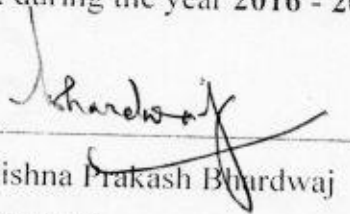 during the year 2016 - 20
Bhardwaj
ishna Prakash Bhardwaj